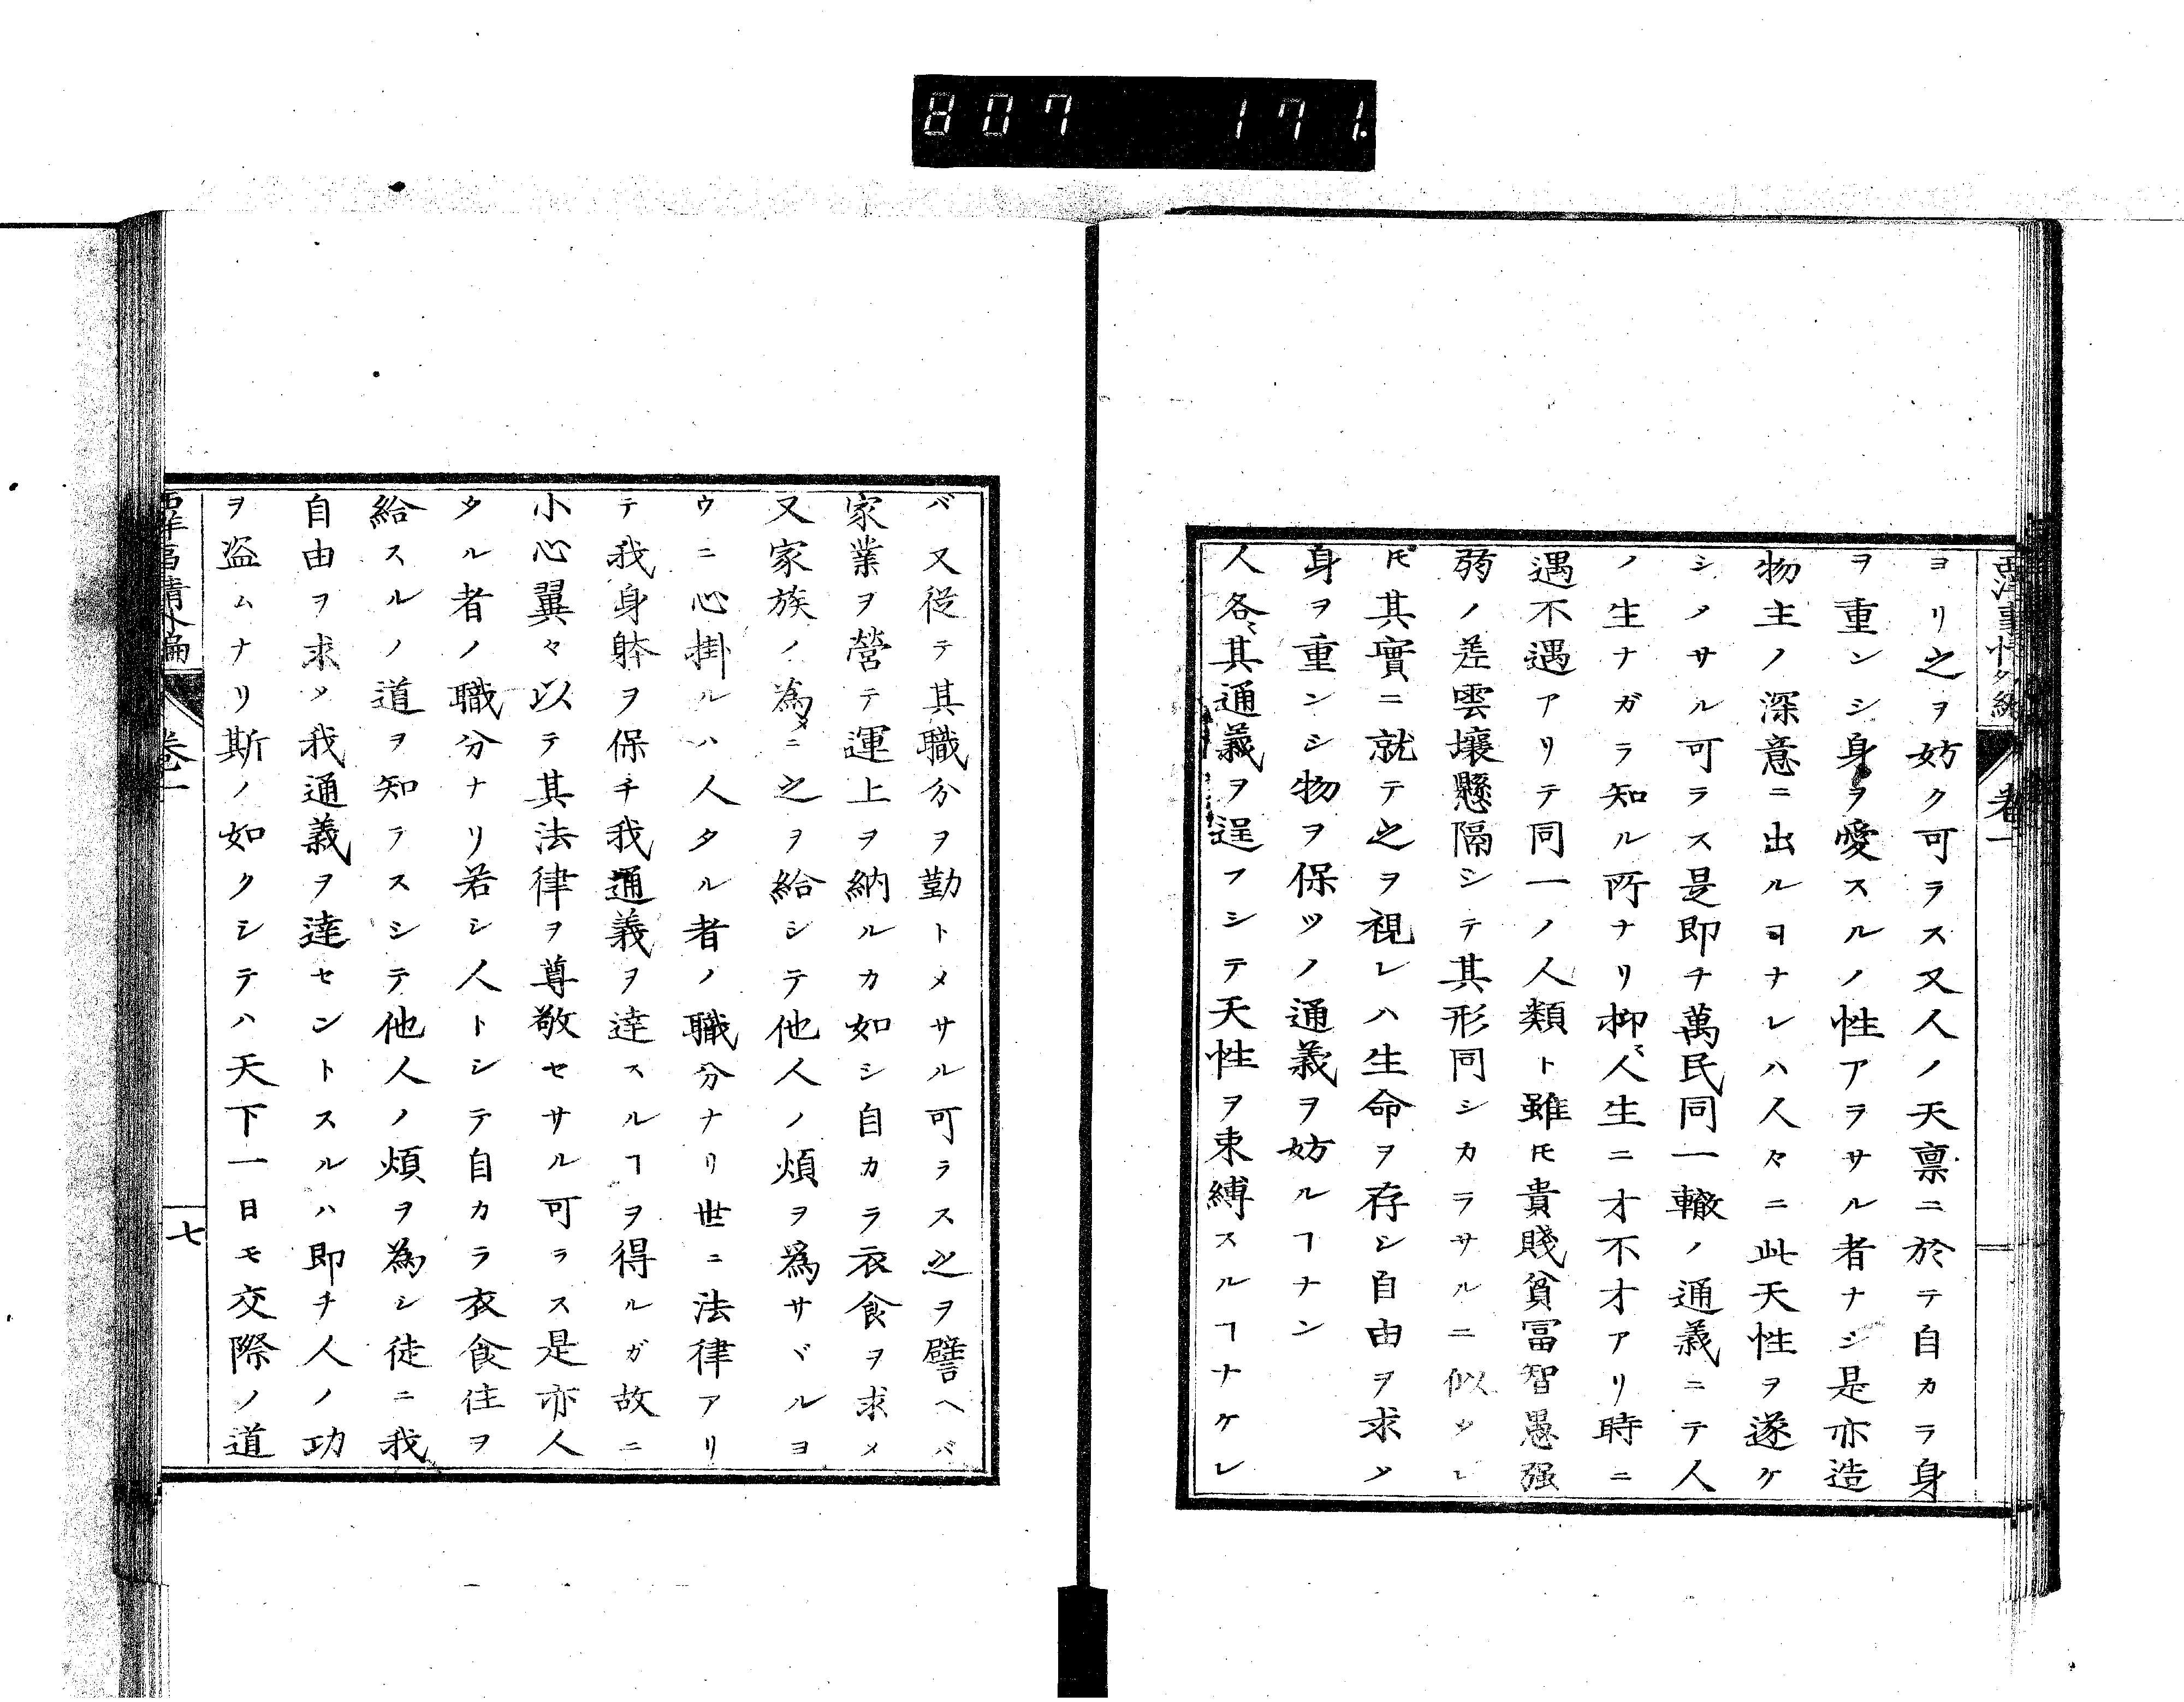 807 171.
西洋事情外編 巻一
ヨリ之ヲ妨ク可ラス又人ノ天禀ニ於テ自カラ身
ヲ重ンシ身ヲ愛スルノ性アラサル者ナシ是亦造
物主ノ深意ニ出ルヿナレハ人々ニ此天性ヲ遂ケ
シメサル可ラス是即チ萬民同一轍ノ通義ニテ人
ノ生ナガラ知ル所ナリ抑〻人生ニオ不オアリ時ニ
遇不遇アリテ同一ノ人類ト雖𪜈貴賤貧冨智愚强
弱ノ差雲壤懸隔シテ其形同シカラサルニ似タレ
𪜈其實ニ就テ之ヲ視レハ生命ヲ存シ自由ヲ求メ
身ヲ重ンシ物ヲ保ツノ通義ヲ妨ルヿナシ
人各〻其通義ヲ逞フシテ天性ヲ束縛スルヿナケレ
バ又従テ其職分ヲ勤トメサル可ラス之ヲ譬ヘバ
家業ヲ營テ運上ヲ納ルカ如シ自カラ衣食ヲ求メ
又家族ノ為メニ之ヲ給シテ他人ノ煩ヲ爲サヾルヨ
ウニ心掛ルハ人タル者ノ職分ナリ世ニ法律アリ
テ我身躰ヲ保チ我通義ヲ達スルヿヲ得ルガ故ニ
小心翼々以テ其法律ヲ尊敬セサル可ラス是亦人
タル者ノ職分ナリ若シ人トシテ自カラ衣食住ヲ
給スルノ道ヲ知ラスシテ他人ノ煩ヲ為シ徒ニ我
自由ヲ求メ我通義ヲ達セントスルハ即チ人ノ功
ヲ盗ムナリ斯ノ如クシテハ天下一日モ交際ノ道
西洋事情外編 巻一 七